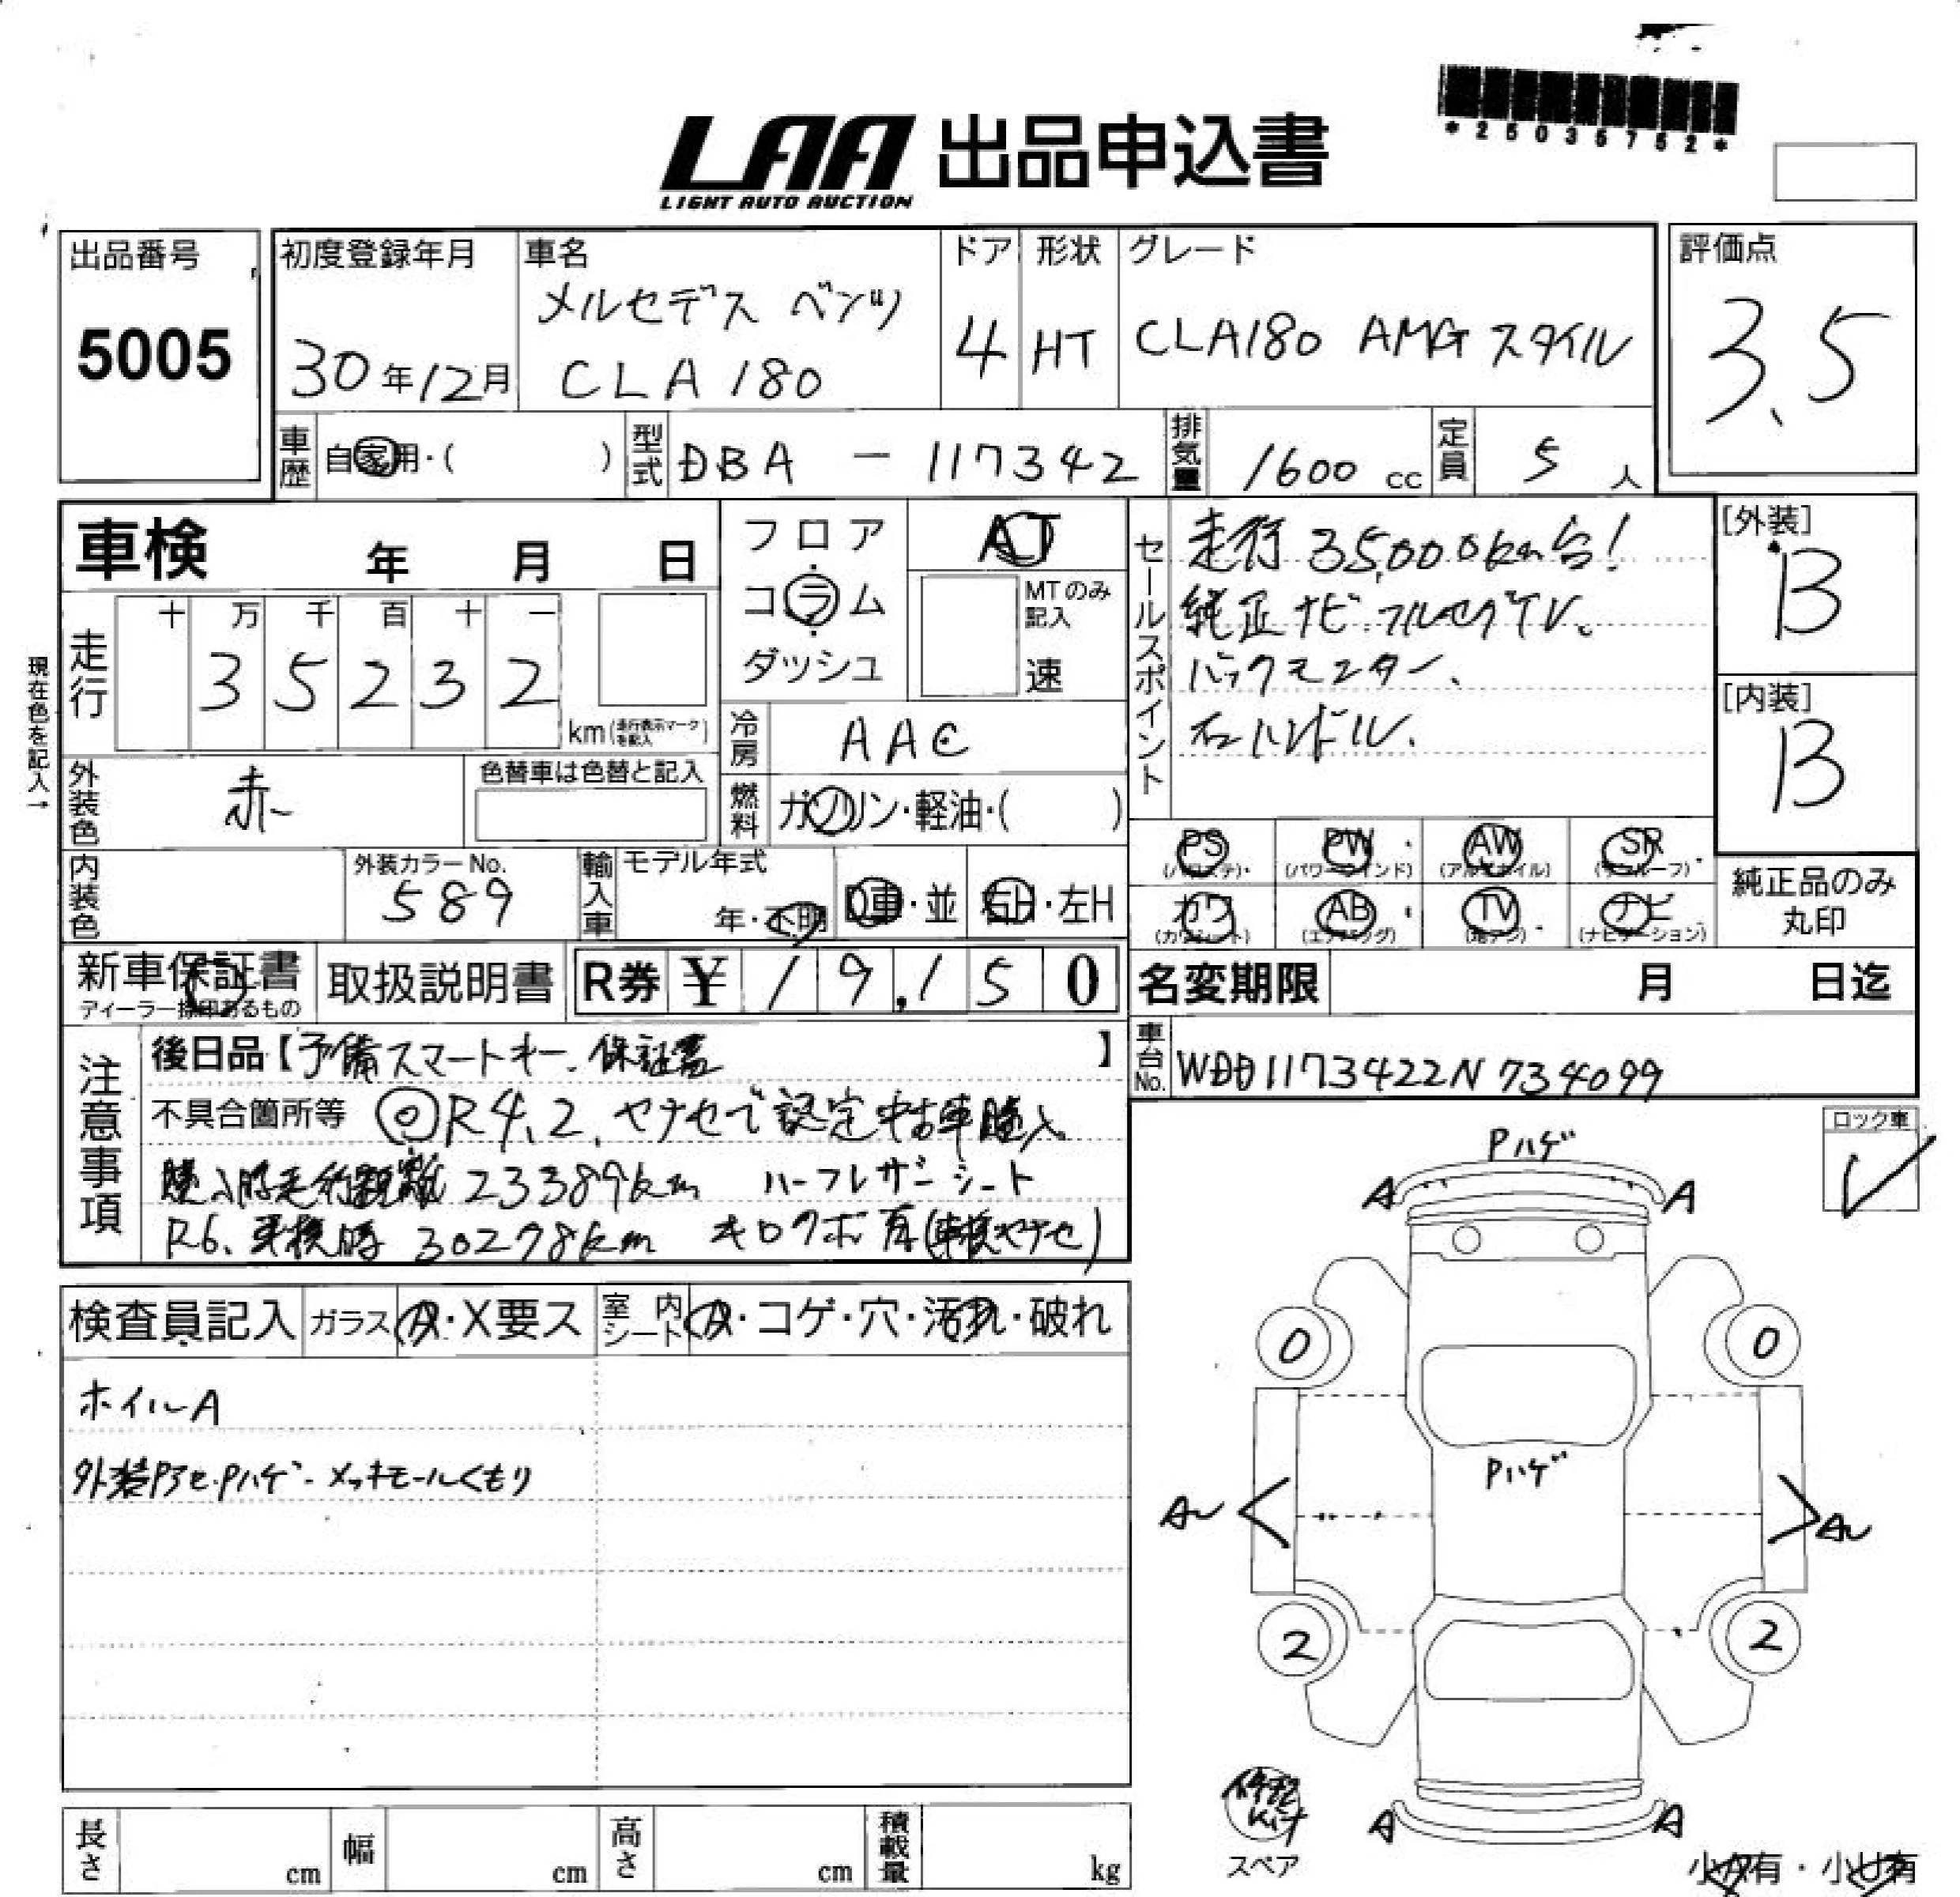 *25036752*
LAA 出品申込書
LIGHT AUTO AUCTION
出品番号
5005
初度登録年月
30年12月
車名
メルセデス ベンツ
CLA180
ドア
4
形状
HT
グレード
CLA180 AMGスタイル
評価点
3.5
車歴 自家用・( )
型式 DBA-117342
排気量 1600 cc
定員 5 人
車検 年 月 日
走行
十 万 千 百 十 一
3 5 2 3 2
km(走行表示マークを記入)
現在色を記入→
外装色 赤
色替車は色替と記入
内装色
外装カラーNo.
589
フロア
コラム
ダッシュ
AT
MTのみ記入
速
冷房 AAC
燃料 ガソリン・軽油・( )
輸入車 モデル年式
年・不明
D車・並 右H・左H
セールスポイント
走行 35,000km台!
純正ナビ フルセグTV、
バックモニター、
右ハンドル、
[外装]
B
[内装]
B
PS (パワステ) PW (パワーウインド) AW (アルミホイル) SR (サンルーフ)
カワ (カワシート) AB (エアバッグ) TV (地デジ) ナビ (ナビゲーション)
純正品のみ
丸印
新車保証書
ディーラー捺印あるもの
取扱説明書
R券 ¥ 19,150
名変期限 月 日迄
車台No. WDD1173422N734099
注意事項
後日品【予備スマートキー、保証書 】
不具合箇所等 ◎R4.2、ヤナセで認定中古車購入
購入時走行距離 23389km ハーフレザーシート
R6、車検時 30298km キロクボ有(車検ヤナセ)
ロック車
検査員記入 ガラス A・X要ス
室内シート A・コゲ・穴・汚れ・破れ
ホイルA
外装アセ・Pハゲ・メッキモールくもり
Pハゲ
A A
0 0
Pハゲ
A A
2 2
修理Kit
スペア
A A
小A有・小U有
長さ cm 幅 cm 高さ cm 積載量 kg